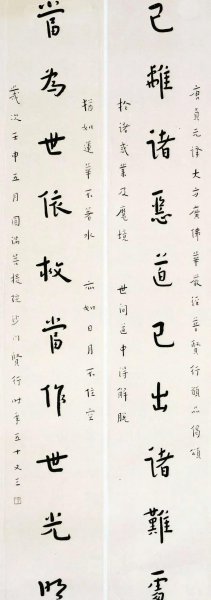 唐貞元譯大方廣佛華嚴經普賢行願品偈頌
已離諸惡道已出諸難處
於諸惑業及魔境 世間道中得解脫
猶如蓮華不著水 亦如日月不住空
當為世依救當作世光明
歲次壬申五月菩提院沙門賢行時年五十又三